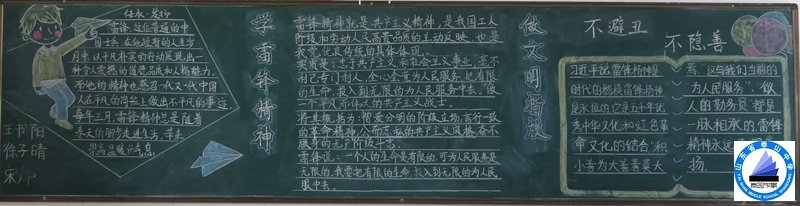 雷锋这位普通的中
国士兵，在他短暂的人生岁
月中，以平凡朴实的行动展现出一
种令人赞扬的道德品质和人格魅力，
而他的精神也感召一代又一代中国
人在平凡的岗位上做出不平凡的事迹
每年三月，雷锋精神总是随着
春天的脚步走进生活，带来
学雷锋精神
雷锋精神就是共产主义精神，是我国工人
阶级和劳动人民高贵品质的生动反映，也是
我党优良传统的具体体现。
实质是：忠于共产主义和社会主义事业，毫不
利己专门利人，全心全意为人民服务，把有限
的生命，投入到无限的为人民服务中去，做
一个平凡而伟大的共产主义战士。
将其概括为：憎爱分明的阶级立场、言行一致
的革命精神、公而忘私的共产主义风格、奋不
顾身的无产阶级斗志。
雷锋说：一个人的生命是有限的，可为人民服务是
无限的，我要把有限的生命，投入到无限的为人民
服中去。
做文明榜样
不避丑
不隐善
习近平说雷锋精神是
时代的楷模雷锋精神
是永恒的它是五千年优
秀中华文化和红色革
命文化的结合"积
小善为大善善莫大
焉"这与我们当前的
"为人民服务""做
人的勤务员"都是
一脉相承的，雷锋
精神永远
扬。
王书阳
徐子晴
山东省泰山中学